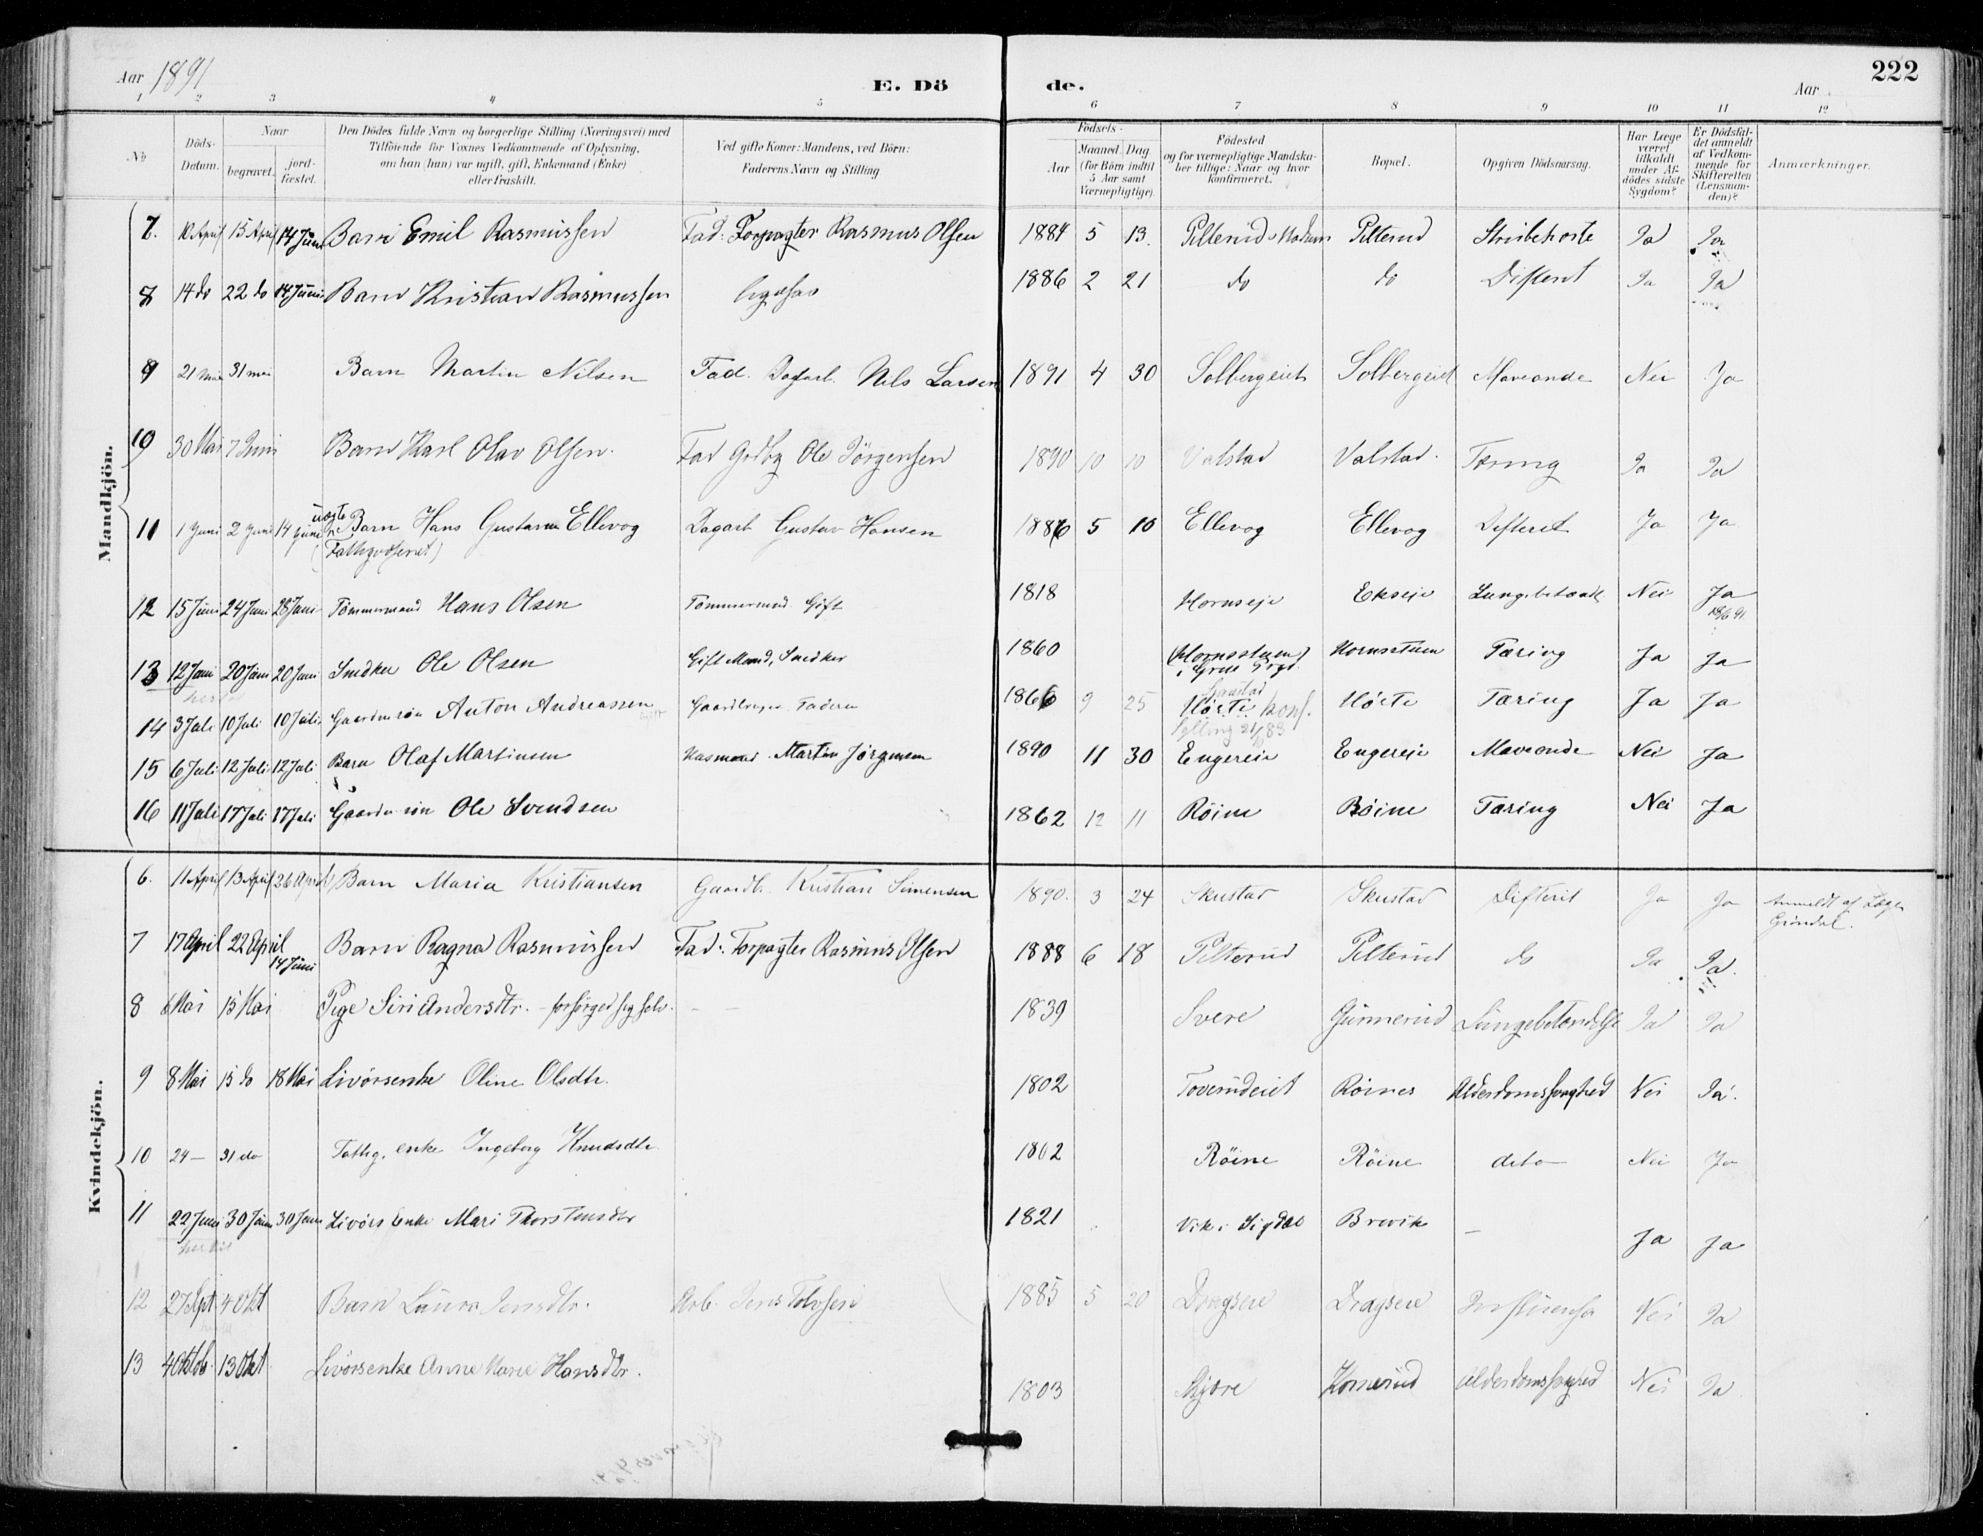 Aar 1891
E. Dö
de.
Aar
222
1 2 3 4 5 6 7 8 9 10 11 12
No
Döds-Datum.
Naar
begravet.
jord-fæstet.
Den Dödes fulde Navn og borgerlige Stilling (Næringsvei) med
Tilföiende for Voxnes Vedkommende af Oplysning,
om han (hun) var ugift, gift, Enkemand (Enke)
eller fraskilt.
Ved gifte Koner: Mandens, ved Börn:
Faderens Navn og Stilling
Födsels-
Aar
Maaned Dag
(for Börn indtil
5 Aar samt
Værnepligtige).
Födested
og for værnepligtige Mandska-
ber tillige: Naar og hvor
konfirmeret.
Bopæl.
Opgiven Dödsaarsag.
Har Læge
været
tilkaldt
under Af-
dödes sidste
Sygdom?
Er Dödsfal-
det anmeldt
af Vedkom-
mende for
Skifteretten
(Lensman-
den)?
Anmærkninger.
Mandkjön.
7. 10 April 15 April 14 Juni Barn Emil Rasmussen Fad: Forpagter Rasmus Olsen 1884 5 13. Pilterud Modum Pilterud Strubehoste Ja Ja
8 14 do 22 do 14 Juni Barn Kristian Rasmussen ligesaa 1886 2 21 do do Difterit Ja Ja
9 21 mai 31 mai Barn Martin Nilsen Fad. Dagarb. Nils Larsen 1891 4 30 Solbergeiet Solbergeiet Maveonde Nei Ja
10 30 Mai 7 Juni Barn Karl Olav Olsen. Fad Grdbg Ole Jörgensen 1890 10 10 Valstad Valstad. Tæring Ja Ja
11 1 Juni 2 Juni 14 Juni uægte Barn Hans Gustavsen Ellevog Dagarb Gustav Hansen 1886 5 10 Ellevog Ellevog Difterit Ja Ja
12 15 Juni 24 Juni 28 Juni Tömmermand Hans Olsen Tømmermd. Gift 1818 Hornseje Ekseje Lungebetænd. Nei Ja
18/6 91
13 12 Juni 20 Juni 20 Juni Snedker Ole Olsen Gift Mand, Snedker 1860 Hornsstuen Hornsstuen Tæring Ja Ja
14 3 Juli 10 Juli 10 Juli Gaardm.søn Anton Andreassen Gaardbruger Faderen 1866 9 25 Høste konf. Høste Tæring Ja Ja
Sylling 21/10 83
15 6 Juli 12 Juli 12 Juli Barn Olaf Martinsen Husmand Martin Jörgensen 1890 11 30 Engereie Engereje Maveonde Nei Ja
16 11 Juli 17 Juli 17 Juli Gaardm. søn Ole Svendsen 1862 12 11 Röine Röine Tæring Nei Ja
Kvindekjön.
6. 11 April 13 April 26 April Barn Maria Kristiansen Gaardb. Kristian Simensen 1890. 3 24 Skustad Skustad Difterit Ja Ja Anmeldt af Læge
Gröndal.
7 17 April 22 April Barn Ragna Rasmussen Fad: Forpagter Rasmus Olsen 1888 6 18 Pilterud Pilterud do Ja Ja
14 Juni
8 6 Mai 15 Mai Pige Siri Andersdtr. - forsörged sig selv. 1839 Svere Gunnerud Lungebetændelse Ja Ja
9 8 Mai 15 do 18 Mai Livörsenke Oline Olsdtr. 1802 Toverudeiet Röines Alderdomssvaghed Nei Ja.
10 24 - 31 do Fattig. enke Ingeborg Knudsdtr 1802 Röine Röine dito Nei Ja
11 22 Juni 30 Juni 30 Juni Livörs Enke Mari Thorstensdtr 1821 Vik i Sigdal Brevik - Ja Ja
12 27 Spt 4 Okt Barn Laura Jensdtr. Arb. Jens Tolvsen 1885 5 20 Dragsere Dragsere Influensa Nei Ja
13 4 Oktob. 13 Okt Livörsenke Anne Marie Hansdtr. 1803 Komerud Alderdomssvaghed Nei Ja